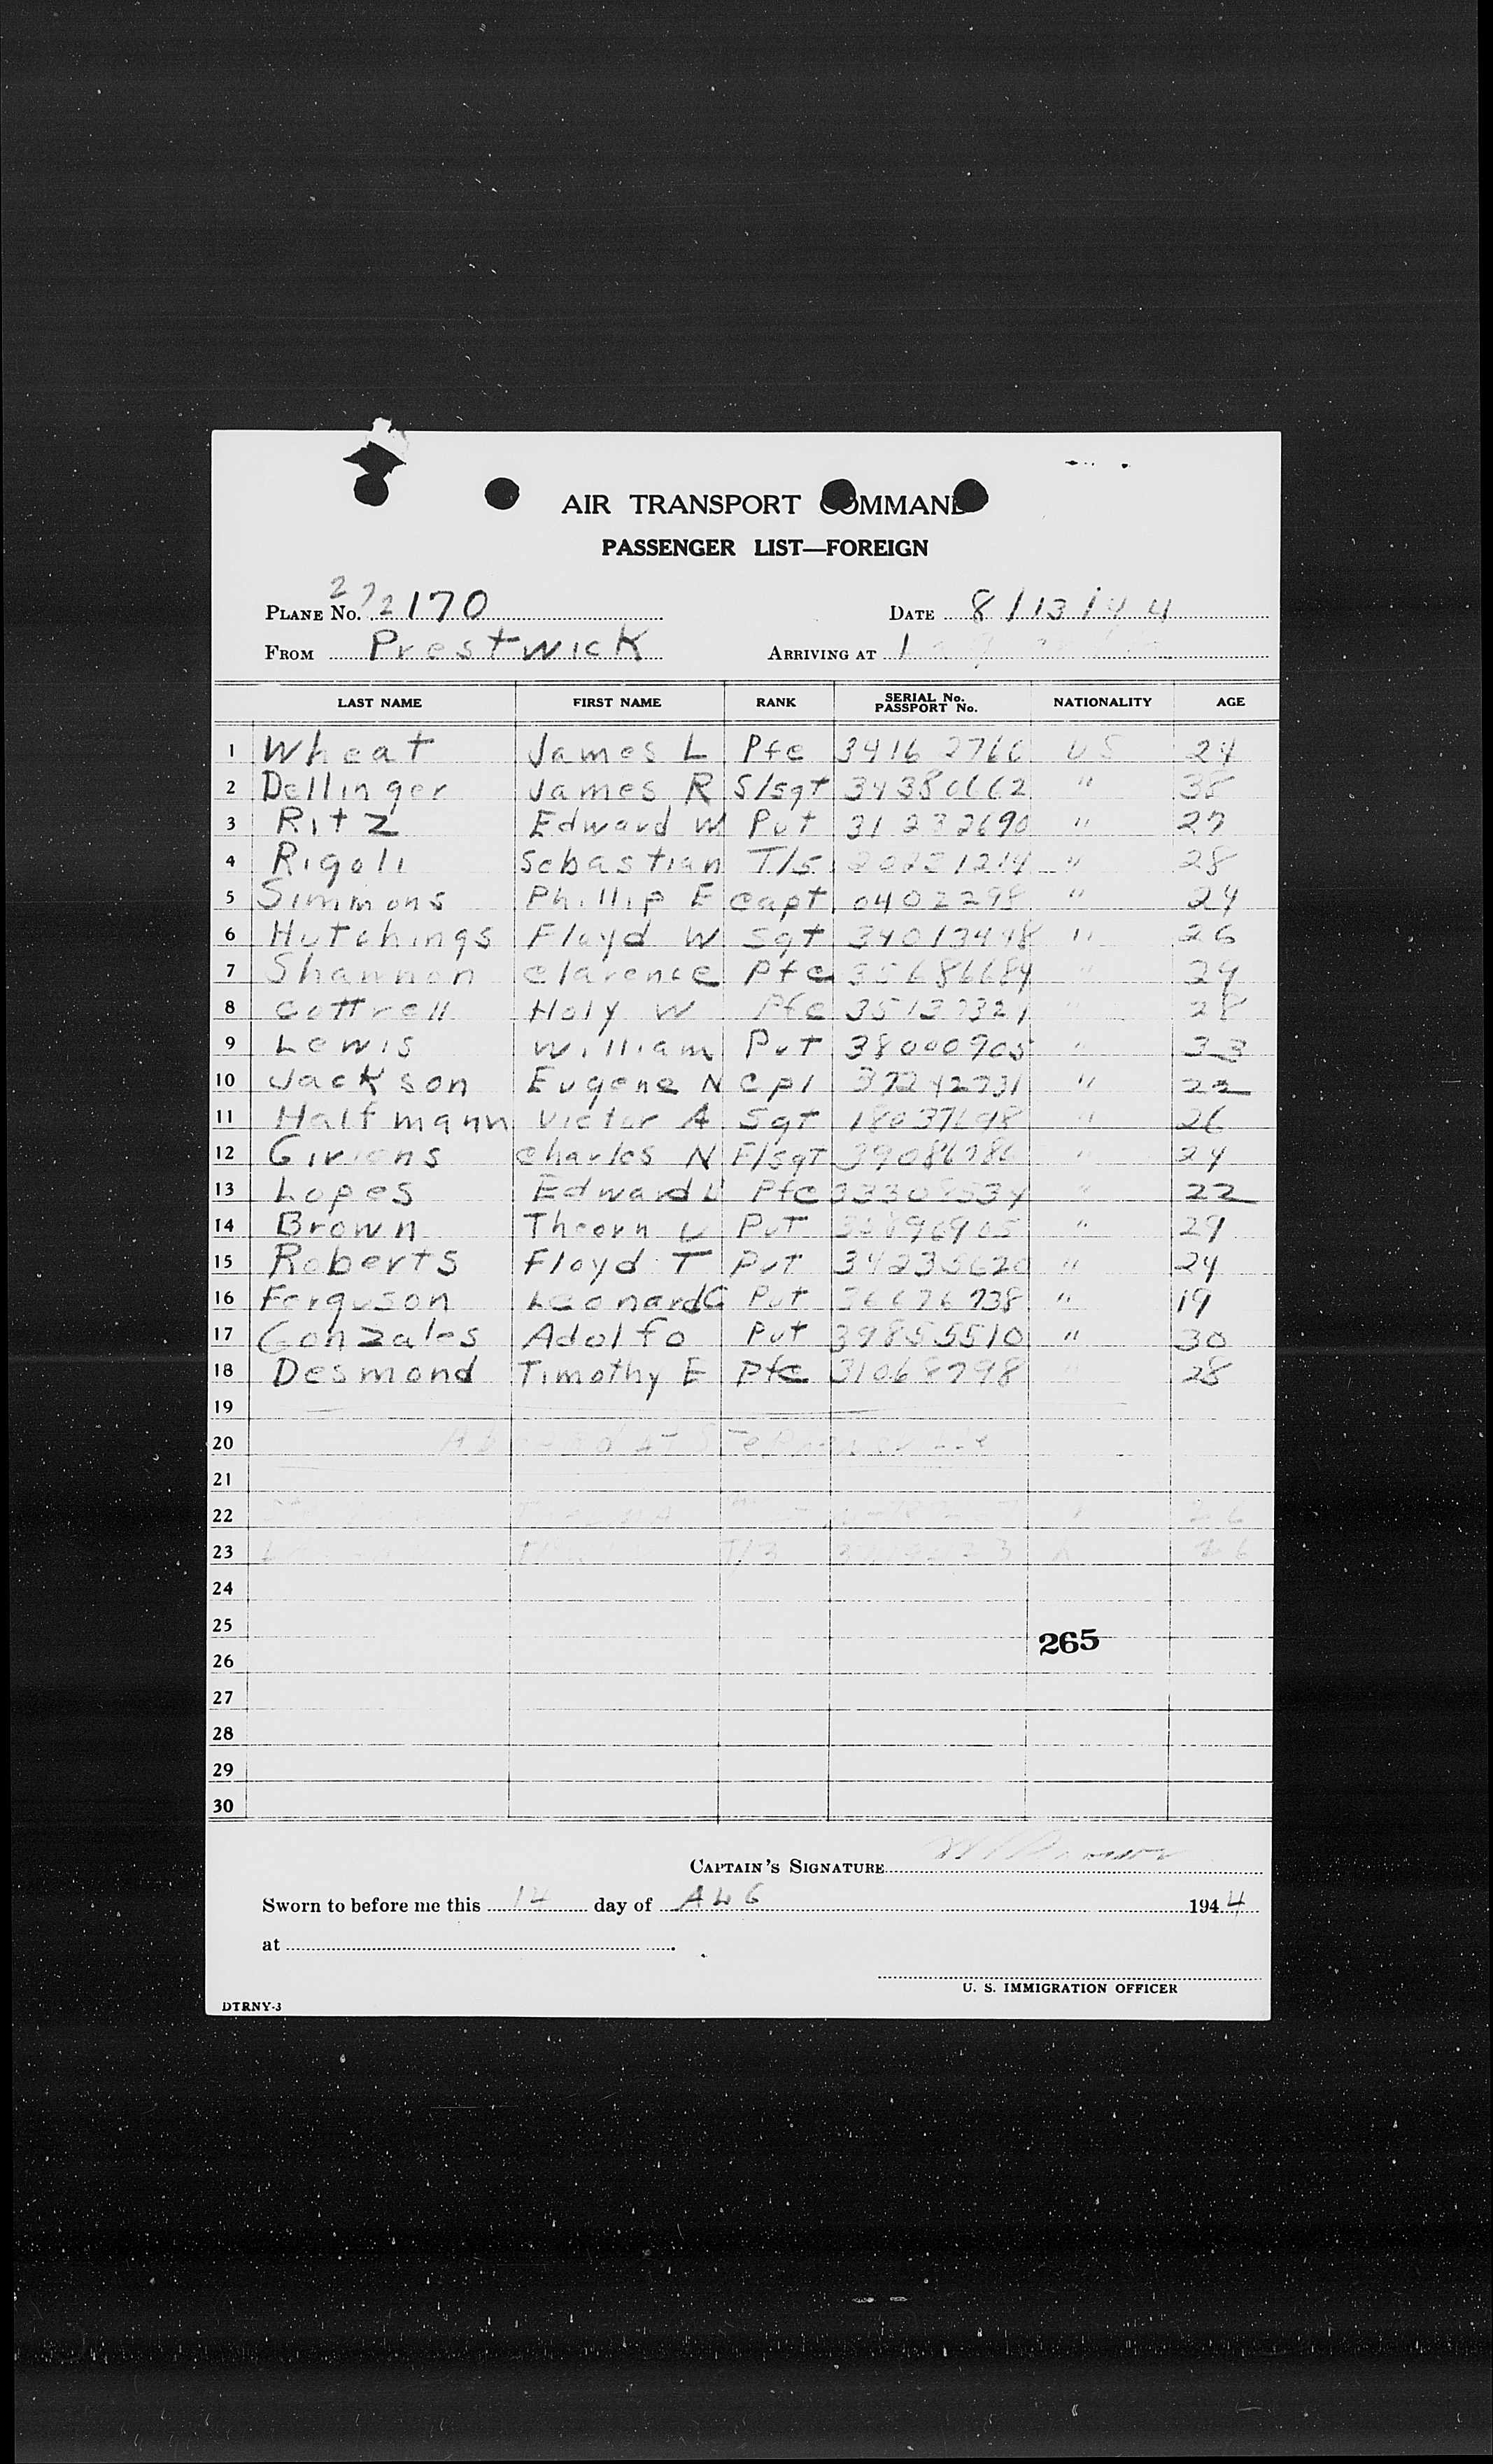 AIR TRANSPORT COMMAND
PASSENGER LIST—FOREIGN
PLANE No. 272170 DATE 8/13/44
FROM Prestwick ARRIVING AT
LAST NAME FIRST NAME RANK SERIAL No. PASSPORT No. NATIONALITY AGE
1 Wheat James L Pfc 34162766 US 24
2 Dellinger James R S/sgt 34380662 " 35
3 Ritz Edward W Pvt 31232690 " 27
4 Rigoli Sebastian T/5 20231214 " 28
5 Simmons Phillip E Capt 0402298 " 24
6 Hutchings Floyd W Sgt 34013448 " 26
7 Shannon Clarence Pfc 35686684 " 29
8 Cottrell Holy W Pfc 35137321 " 28
9 Lewis William Pvt 38000905 " 33
10 Jackson Eugene N Cpl 37242731 " 22
11 Halfmann Victor A Sgt 18037698 " 26
12 Givens Charles N F/sgt 39086786 " 24
13 Lopes Edward Pfc 33308534 " 22
14 Brown Theorn L Pvt 32896905 " 29
15 Roberts Floyd T Pvt 34233620 " 24
16 Ferguson Leonard G Pvt 36676738 " 19
17 Gonzales Adolfo Pvt 39855510 " 30
18 Desmond Timothy E Pfc 31068798 " 28
19
20
21
22 26
23 T/3 " 26
24
25
265
26
27
28
29
30
CAPTAIN'S SIGNATURE
Sworn to before me this 14 day of AUG 1944
at
U. S. IMMIGRATION OFFICER
DTRNY-3